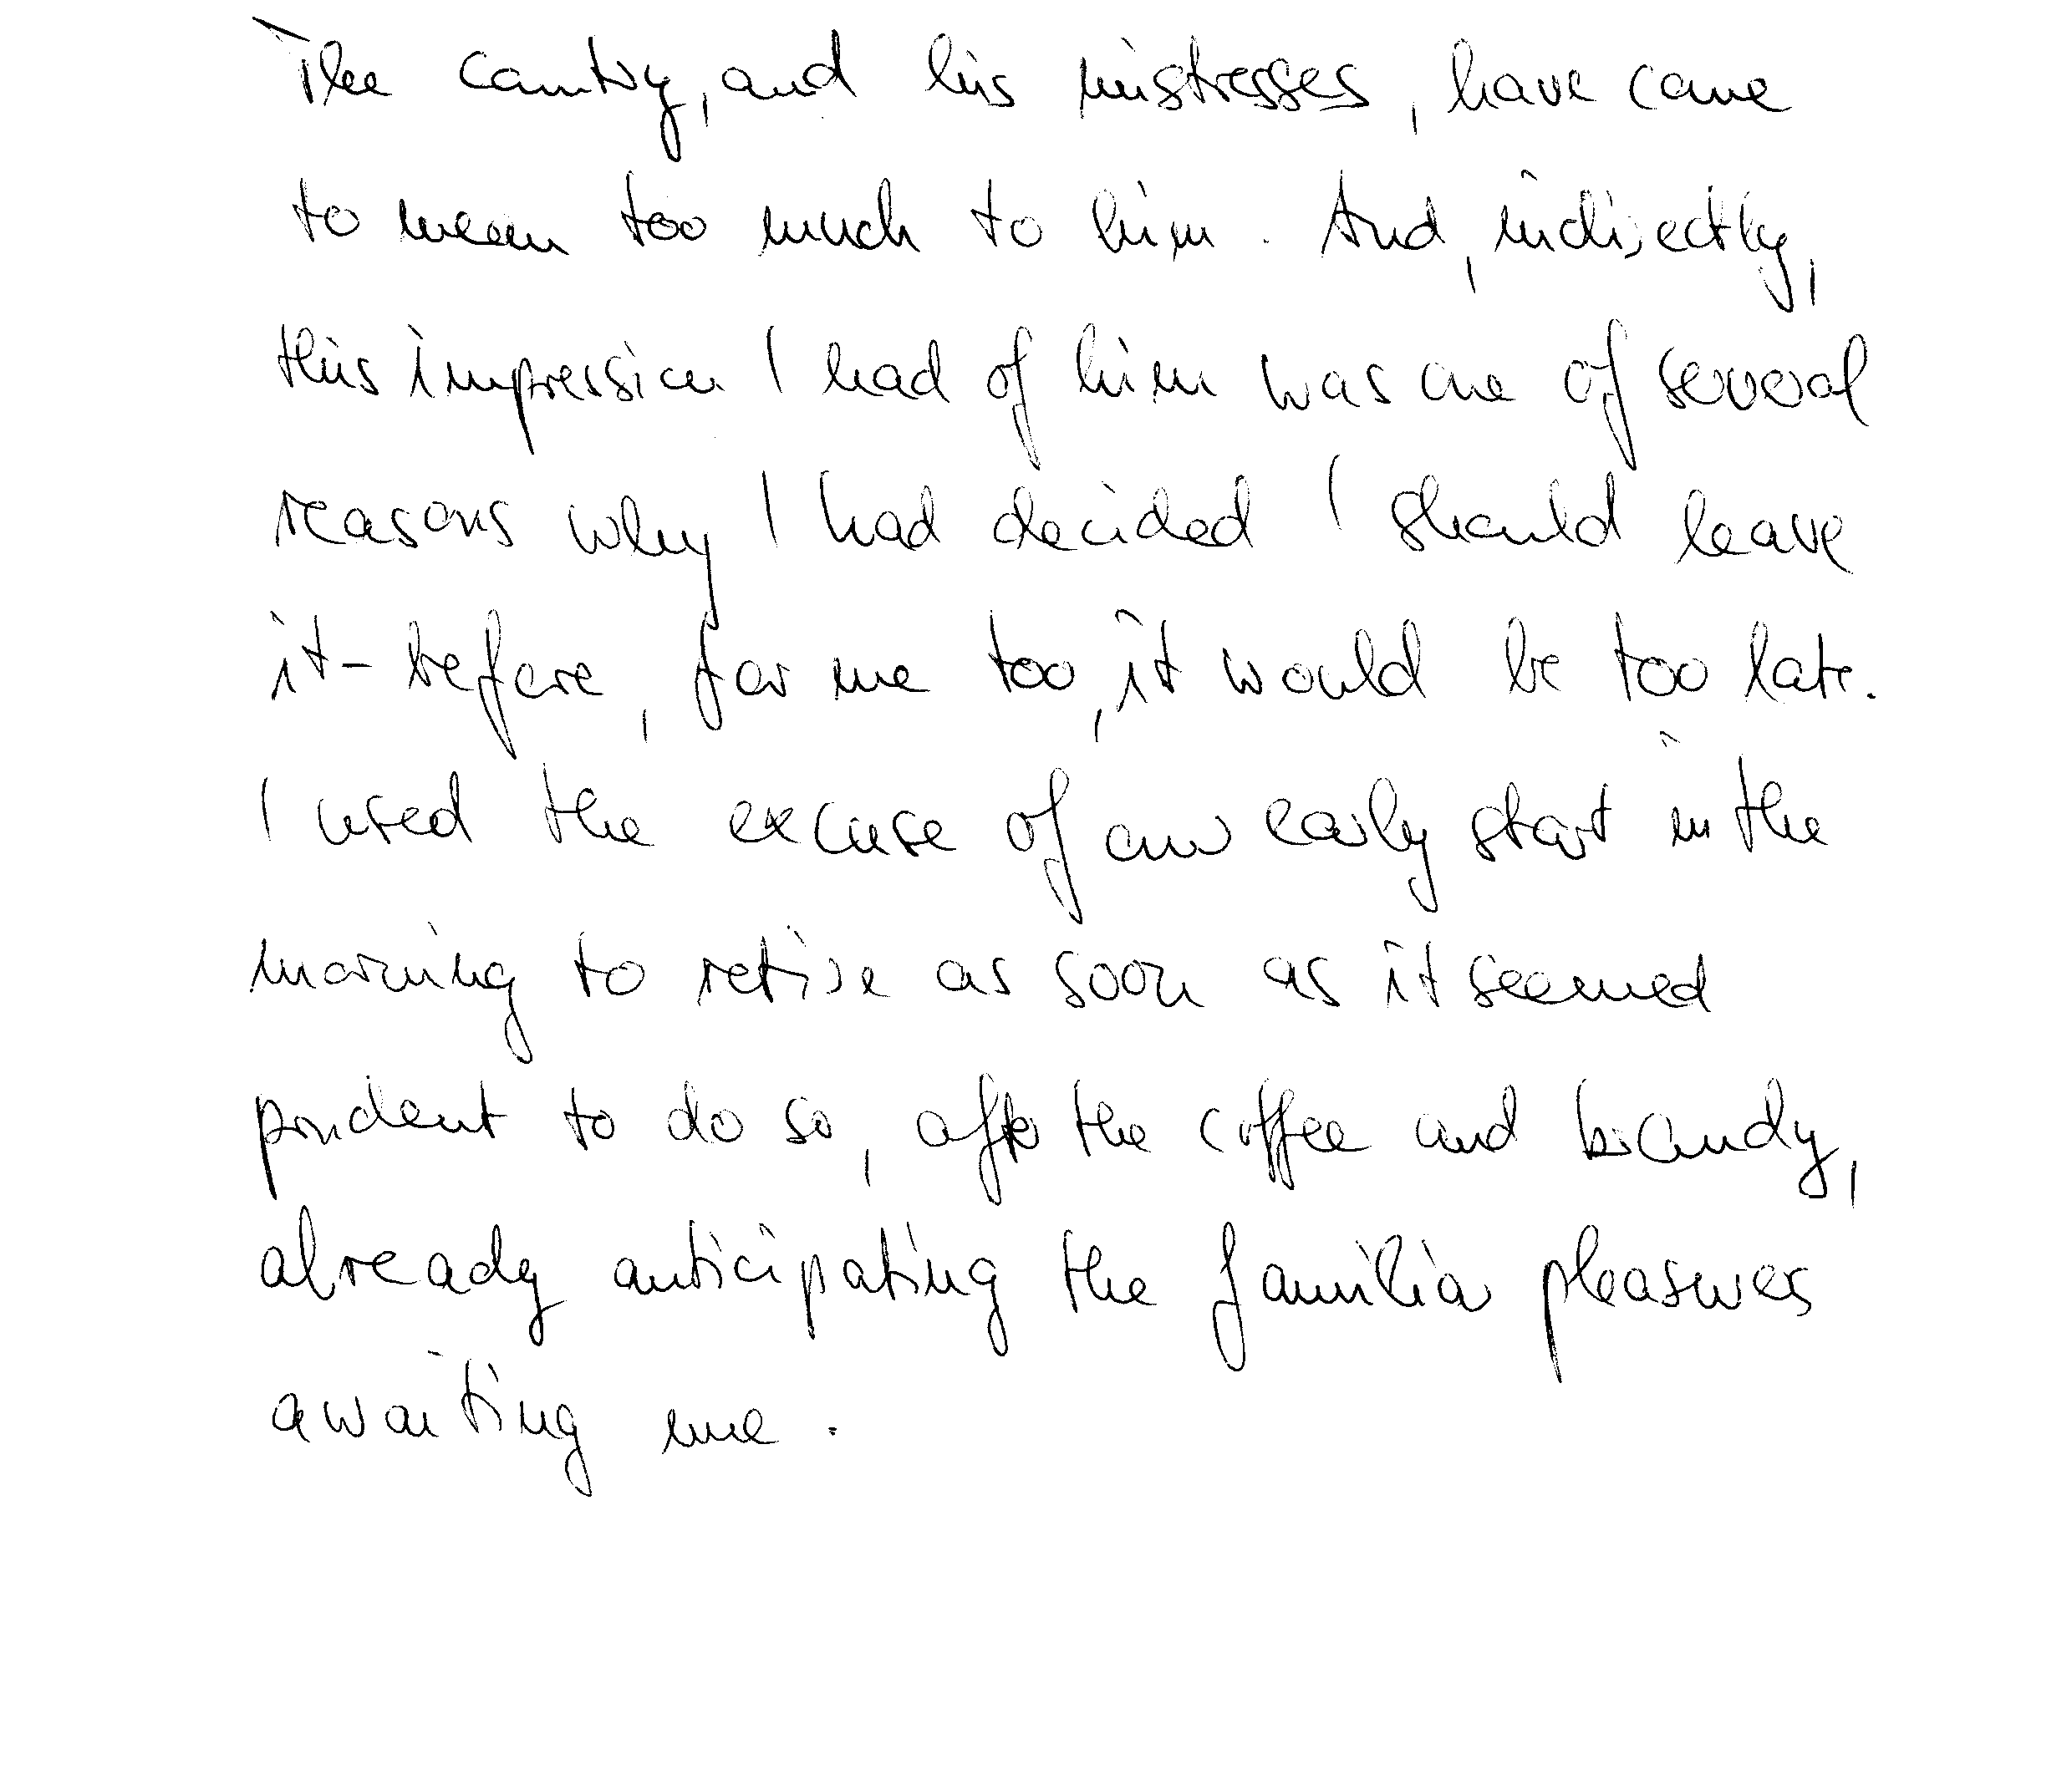 The country, and his mistresses, have come
to mean too much to him. And, indirectly,
this impression I had of him was one of several
reasons why I had decided I should leave
it - before, for me too, it would be too late.
I used the excuse of an early start in the
morning to retire as soon as it seemed
prudent to do so, after the coffee and brandy,
already anticipating the familiar pleasures
awaiting me.